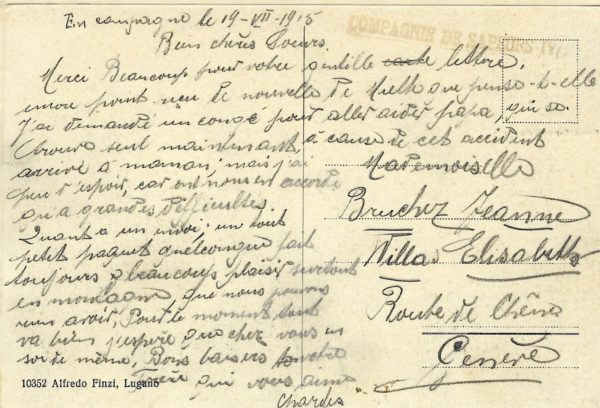 En campagne le 19-VII-1915
COMPAGNIE DE SAPEURS IV/
Bien chères Soeurs.
Merci Beaucoup pour votre gentille carte lettere,
encore point reçu de nouvelle de Milly que pense-t-elle
J'ai demandé un congé pour aller aider papa, qui se
trouve seul maintenant, à cause de cet accident
arrivé à maman; mais j'ai
peu d'espoir, car ont nous en accorde
qu'a grandes difficultés.
Quant a un envoi; un tout
petit paquet quelconque fait
toujours beaucoup plaisir surtout
en montagne que nous pouvons
rien avoir. Pour le moment tout
va bien j'espère que chez vous en
soi de même, Bons baisers de votre
Frère qui vous aime
Charles
Mademoiselle
Bruchez Jeanne
Villa Elisabeth
Route de Chêne
Genève
10352 Alfredo Finzi, Lugano